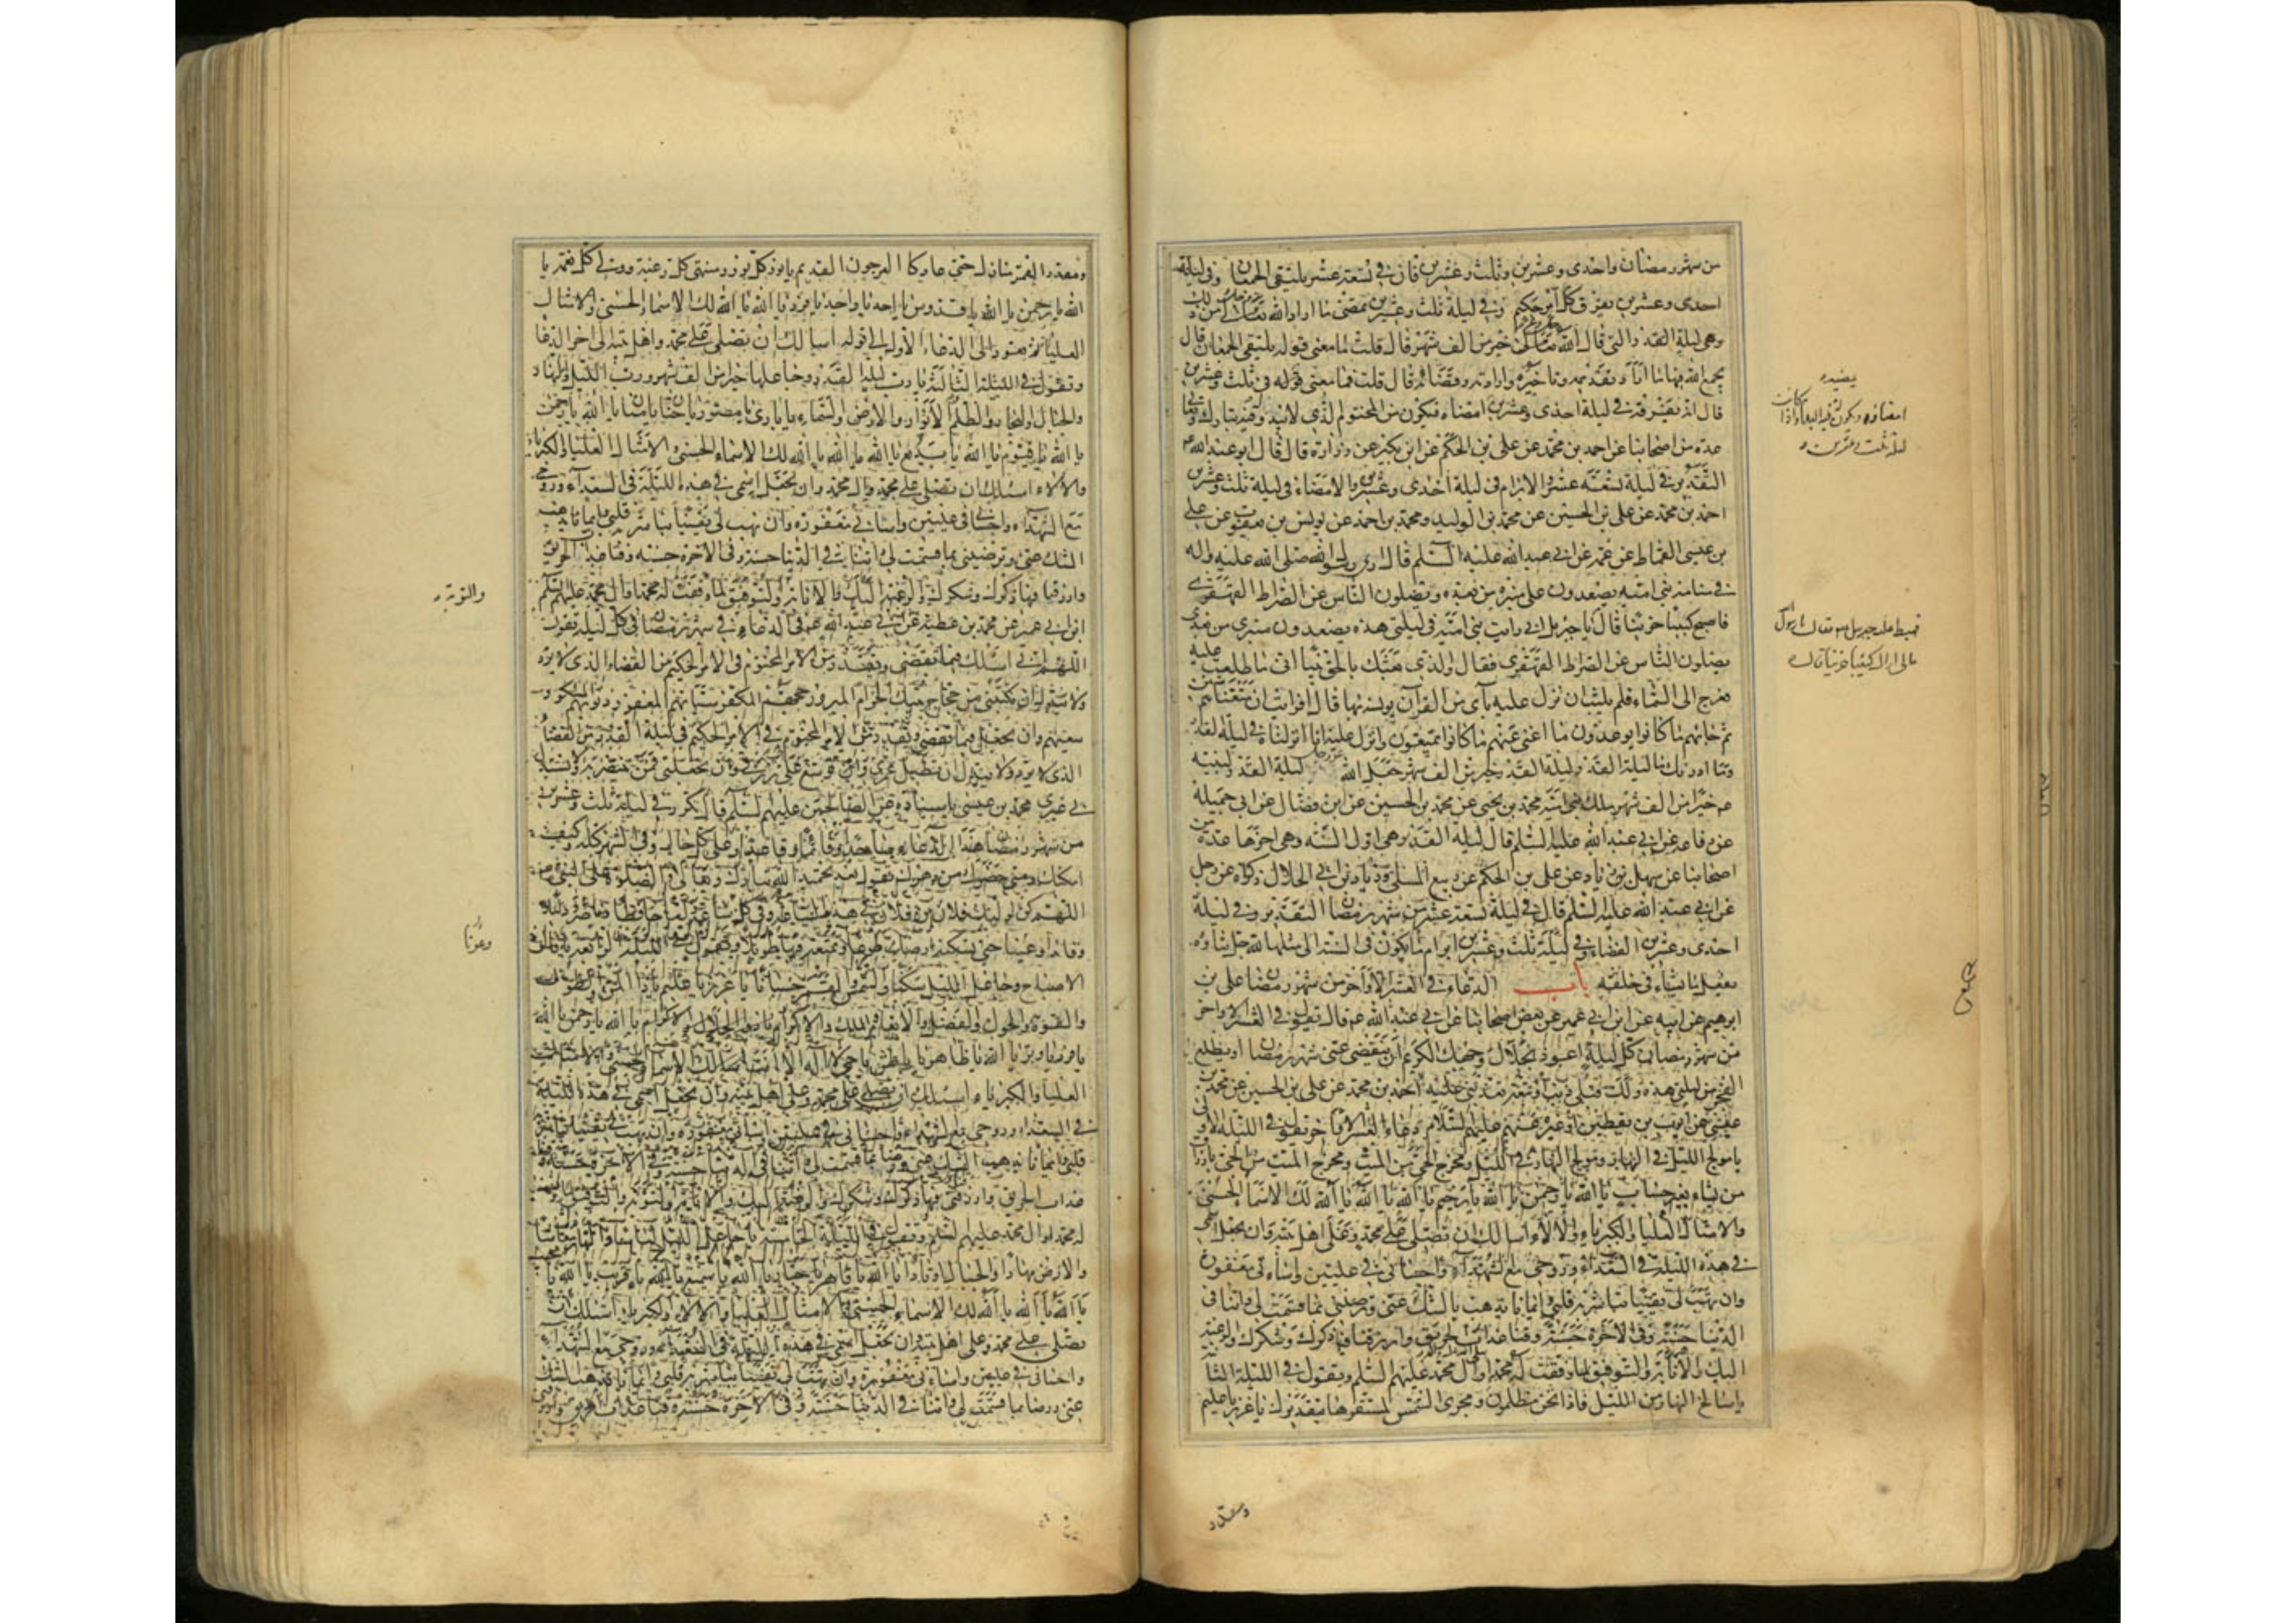 من شهر رمضان واحدى وعشرين وثلث وعشرين قال في تسعة عشر يلتقى الجمعان وفي ليلة
احدى وعشرين يفرق كل امر حكيم وفي ليلة ثلث وعشرين يمضى ما اراد الله تعالى من ذلك
وهي ليلة القدر التي قال الله تعالى خير من الف شهر قال قلت ما معنى قوله يلتقى الجمعان قال
يجمع الله فيها ما اراد تقديمه وتاخيره وارادته وقضائه قال قلت فما معنى قوله في ثلث وعشرين
قال انه يفرقه في ليلة احدى وعشرين امضاء فيكون من المحتوم الذي لا يبد و فيه تبارك وتعالى
عدة من اصحابنا عن احمد بن محمد عن على بن الحكم عن ابن بكير عن زرارة قال قال ابو عبد الله
التقدير في ليلة تسعة عشر والابرام في ليلة احدى وعشرين والامضاء في ليلة ثلث وعشرين
احمد بن محمد عن على بن الحسين عن محمد بن الوليد ومحمد بن احمد عن يونس بن يعقوب عن على
بن عيسى القماط عن عمه عن ابي عبد الله عليه السلم قال ارى رسول الله صلى الله عليه واله
في منامه بني امية يصعدون على منبره من بعده ويضلون الناس عن الصراط القهقرى
فاصبح كئيبا حزينا قال يا جبريل اني رايت بني امية في ليلتى هذه يصعدون منبرى من بعدى
يضلون الناس عن الصراط القهقرى فقال والذي بعثك بالحق نبيا انى ما اطلعت عليه
فعرج الى السماء فلم يلبث ان نزل عليه بآى من القرآن يونسه بها قال افرايت ان متعناهم سنين
ثم جاءهم ما كانوا يوعدون ما اغنى عنهم ما كانوا يمتعون وانزل عليه انا انزلناه في ليلة القدر
وما ادريك ما ليلة القدر ليلة القدر خير من الف شهر جعل الله ليلة القدر لنبيه
خيرا من الف شهر ملك بني امية محمد بن يحيى عن محمد بن الحسين عن ابن فضال عن ابي جميلة
عن رفاعه عن ابي عبد الله عليه السلم قال ليلة القدر هي اول السنه وهي اخرها عدة من
اصحابنا عن سهل بن زياد عن على بن الحكم عن ربيع المسلى وزياد بن ابي الحلال ذكراه عن رجل
عن ابي عبد الله عليه السلم قال في ليلة تسعة عشر من شهر رمضان التقدير وفي ليلة
احدى وعشرين القضاء وفي ليلة ثلث وعشرين ابرام ما يكون في السنة الى مثلها لله جل ثناؤه
يفعل ما يشاء في خلقه باب الدعاء في العشر الاواخر من شهر رمضان على بن
ابرهيم عن ابيه عن ابن ابي عمير عن بعض اصحابنا عن ابي عبد الله قال تقول في العشر الاواخر
من شهر رمضان كل ليلة اعوذ بجلال وجهك الكريم ان ينقضى عنى شهر رمضان او يطلع
الفجر من ليلتى هذه ولك قبلى ذنب او تبعة تعذبنى عليه احمد بن محمد عن على بن الحسين عن محمد بن
عيسى عن ايوب بن يقطين او غيره عنهم عليهم السلام دعاء العشر الاواخر تقول في الليلة الاولى
يا مولج الليل في النهار ومولج النهار في الليل ومخرج الحي من الميت ومخرج الميت من الحي يا رازق
من يشاء بغير حساب يا الله يا رحمن يا الله يا رحيم يا الله يا الله يا الله لك الاسماء الحسنى
والامثال العليا والكبرياء والالاء اسالك ان تصلى على محمد وعلى اهل بيته وان تجعل اسمى
في هذه الليلة في السعداء وروحي مع الشهداء واحسانى في عليين واساءتى مغفورة
وان تهب لي يقينا تباشر به قلبي وايمانا يذهب بالشك عنى وترضينى بما قسمت لي واتنا في
الدنيا حسنة وفي الاخرة حسنة وقنا عذاب الحريق وارزقنا فيها ذكرك وشكرك والرغبة
اليك والانابة والتوفيق لما وفقت له محمدا وال محمد عليهم السلم وتقول في الليلة الثانية
يا سالخ النهار من الليل فاذا نحن مظلمون ومجرى الشمس لمستقرها بتقديرك يا عزيز يا عليم
ومقدر
ومقدر القمر منازل حتى عاد كالعرجون القديم يا نور كل نور ومنتهى كل رغبة وولى كل نعمة يا
الله يا رحمن يا الله يا قدوس يا احد يا واحد يا فرد يا الله يا الله لك الاسماء الحسنى والامثال
العليا ثم تعود الى الدعاء الاول الى قوله اسالك ان تصلى على محمد واهل بيته الى اخر الدعا
وتقول في الليلة الثالثة يا رب ليلة القدر وجاعلها خيرا من الف شهر ورب الليل والنهار
والجبال والبحار والظلم والانوار والارض والسماء يا بارى يا مصور يا حنان يا منان يا الله يا رحمن
يا الله يا قيوم يا الله يا بديع يا الله يا الله يا الله لك الاسماء الحسنى والامثال العليا والكبرياء
والالاء اسئلك ان تصلى على محمد وال محمد وان تجعل اسمى في هذه الليلة في السعداء وروحى
مع الشهداء واحسانى في عليين واساءتى مغفورة وان تهب لي يقينا تباشر به قلبي وايمانا يذهب
الشك عنى وترضينى بما قسمت لي واتنا في الدنيا حسنة وفي الاخرة حسنه وقنا عذاب الحريق
وارزقنا فيها ذكرك وشكرك والرغبة اليك والانابة والتوفيق لما وفقت له محمدا وال محمد عليهم السلم
ابن ابي عمير عن محمد بن عطية عن ابي عبد الله في الدعاء في شهر رمضان في كل ليلة تقول
اللهم اني اسئلك فيما تقضى وتقدر من الامر المحتوم في الامر الحكيم من القضاء الذى لا يرد
ولا يبدل ان تكتبنى من حجاج بيتك الحرام المبرور حجهم المكفر سيئاتهم المغفور ذنوبهم المشكور
سعيهم وان تجعل فيما تقضى وتقدر من الامر المحتوم في الامر الحكيم في ليلة القدر من القضاء
الذى لا يرد ولا يبدل ان تطيل عمرى وان توسع على في رزقى وان تجعلنى ممن تنتصر به ولا تستبدل
بي غيرى محمد بن عيسى باسناده عن الصالحين عليهم السلم قال تكرر في ليلة ثلث وعشرين
من شهر رمضان هذا الدعاء ساجدا وقائما وقاعدا وعلى كل حال وفي الشهر كله وكيف
امكنك ومتى حضرك من دهرك تقول بعد تحميد الله تبارك وتعالى والصلوة على النبي
اللهم كن لوليك فلان بن فلان في هذه الساعة وفي كل ساعة وليا حافظا وناصرا ودليلا
وقائدا وعينا حتى تسكنه ارضك طوعا وتمتعه فيها طويلا وتقول في الليلة الرابعة يا فالق
الاصباح وجاعل الليل سكنا والشمس والقمر حسبانا يا عزيز يا عليم يا ذا المن والطول
والقوة والحول والفضل والانعام والملك والاكرام يا ذا الجلال والاكرام يا الله يا رحمن يا الله
يا فرد يا وتر يا الله يا ظاهر يا باطن يا حي لا اله الا انت لك الاسماء الحسنى والامثال
العليا والكبرياء اسئلك ان تصلى على محمد وعلى اهل بيته وان تجعل اسمى في هذه الليلة
في السعداء وروحى مع الشهداء واحسانى في عليين واساءتى مغفورة وان تهب لي يقينا تباشر به
قلبي وايمانا يذهب الشك عنى ورضا بما قسمت لي واتنا في الدنيا حسنة وفي الاخرة حسنة وقنا
عذاب الحريق وارزقنى فيها ذكرك وشكرك والرغبة اليك والانابة والتوبة والتوفيق لما وفقت
له محمدا وال محمد عليهم السلم وتقول في الليلة الخامسة يا جاعل الليل لباسا والنهار معاشا
والارض مهادا والجبال اوتادا يا الله يا قاهر يا الله يا جبار يا الله يا سميع يا الله يا قريب يا الله يا مجيب
يا الله يا الله يا الله لك الاسماء الحسنى والامثال العليا والالاء والكبرياء اسئلك ان
تصلى على محمد وعلى اهل بيته وان تجعل اسمى في هذه الليلة في السعداء وروحى مع الشهداء
واحسانى في عليين واساءتى مغفورة وان تهب لي يقينا تباشر به قلبي وايمانا يذهب الشك
عنى ورضا بما قسمت لي واتنا في الدنيا حسنة وفي الاخرة حسنة وقنا عذاب الحريق وارزقنى
والتوبة
وعونا